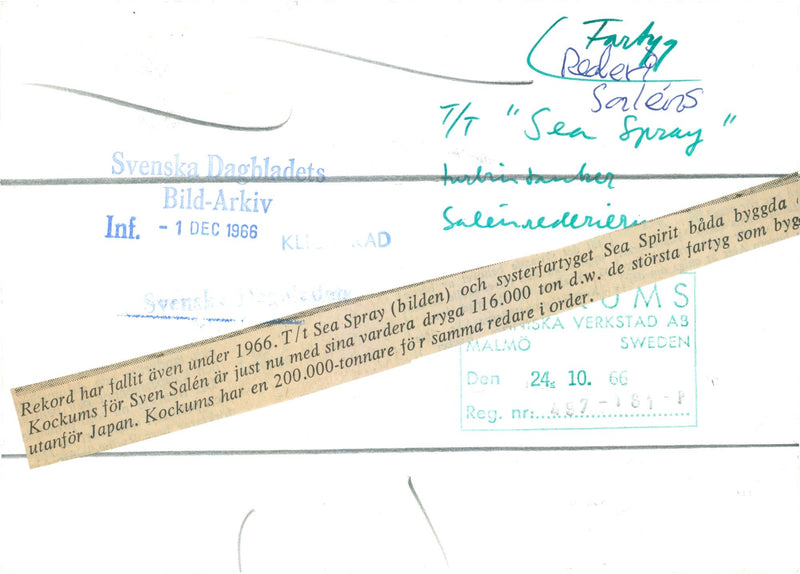 Fartyg
Rederi
Saléns
T/T "Sea Spray"
turbintanker
Salénrederierna
Svenska Dagbladets
Bild-Arkiv
Inf. - 1 DEC 1966
Svenska Dagbladet
Rekord har fallit även under 1966. T/t Sea Spray (bilden) och systerfartyget Sea Spirit båda byggda
Kockums för Sven Salén är just nu med sina vardera dryga 116.000 ton d.w. de största fartyg som byg
utanför Japan. Kockums har en 200.000-tonnare för samma redare i order.
UMS
NISKA VERKSTAD AB
MALMÖ SWEDEN
Den 24. 10. 66
Reg. nr: